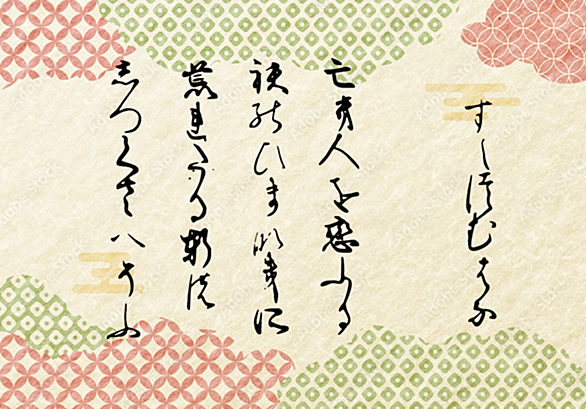 すゑつむはな
亡き人を戀ふる
袂のひまなきに
荒れたる軒の
しつくさへそふ